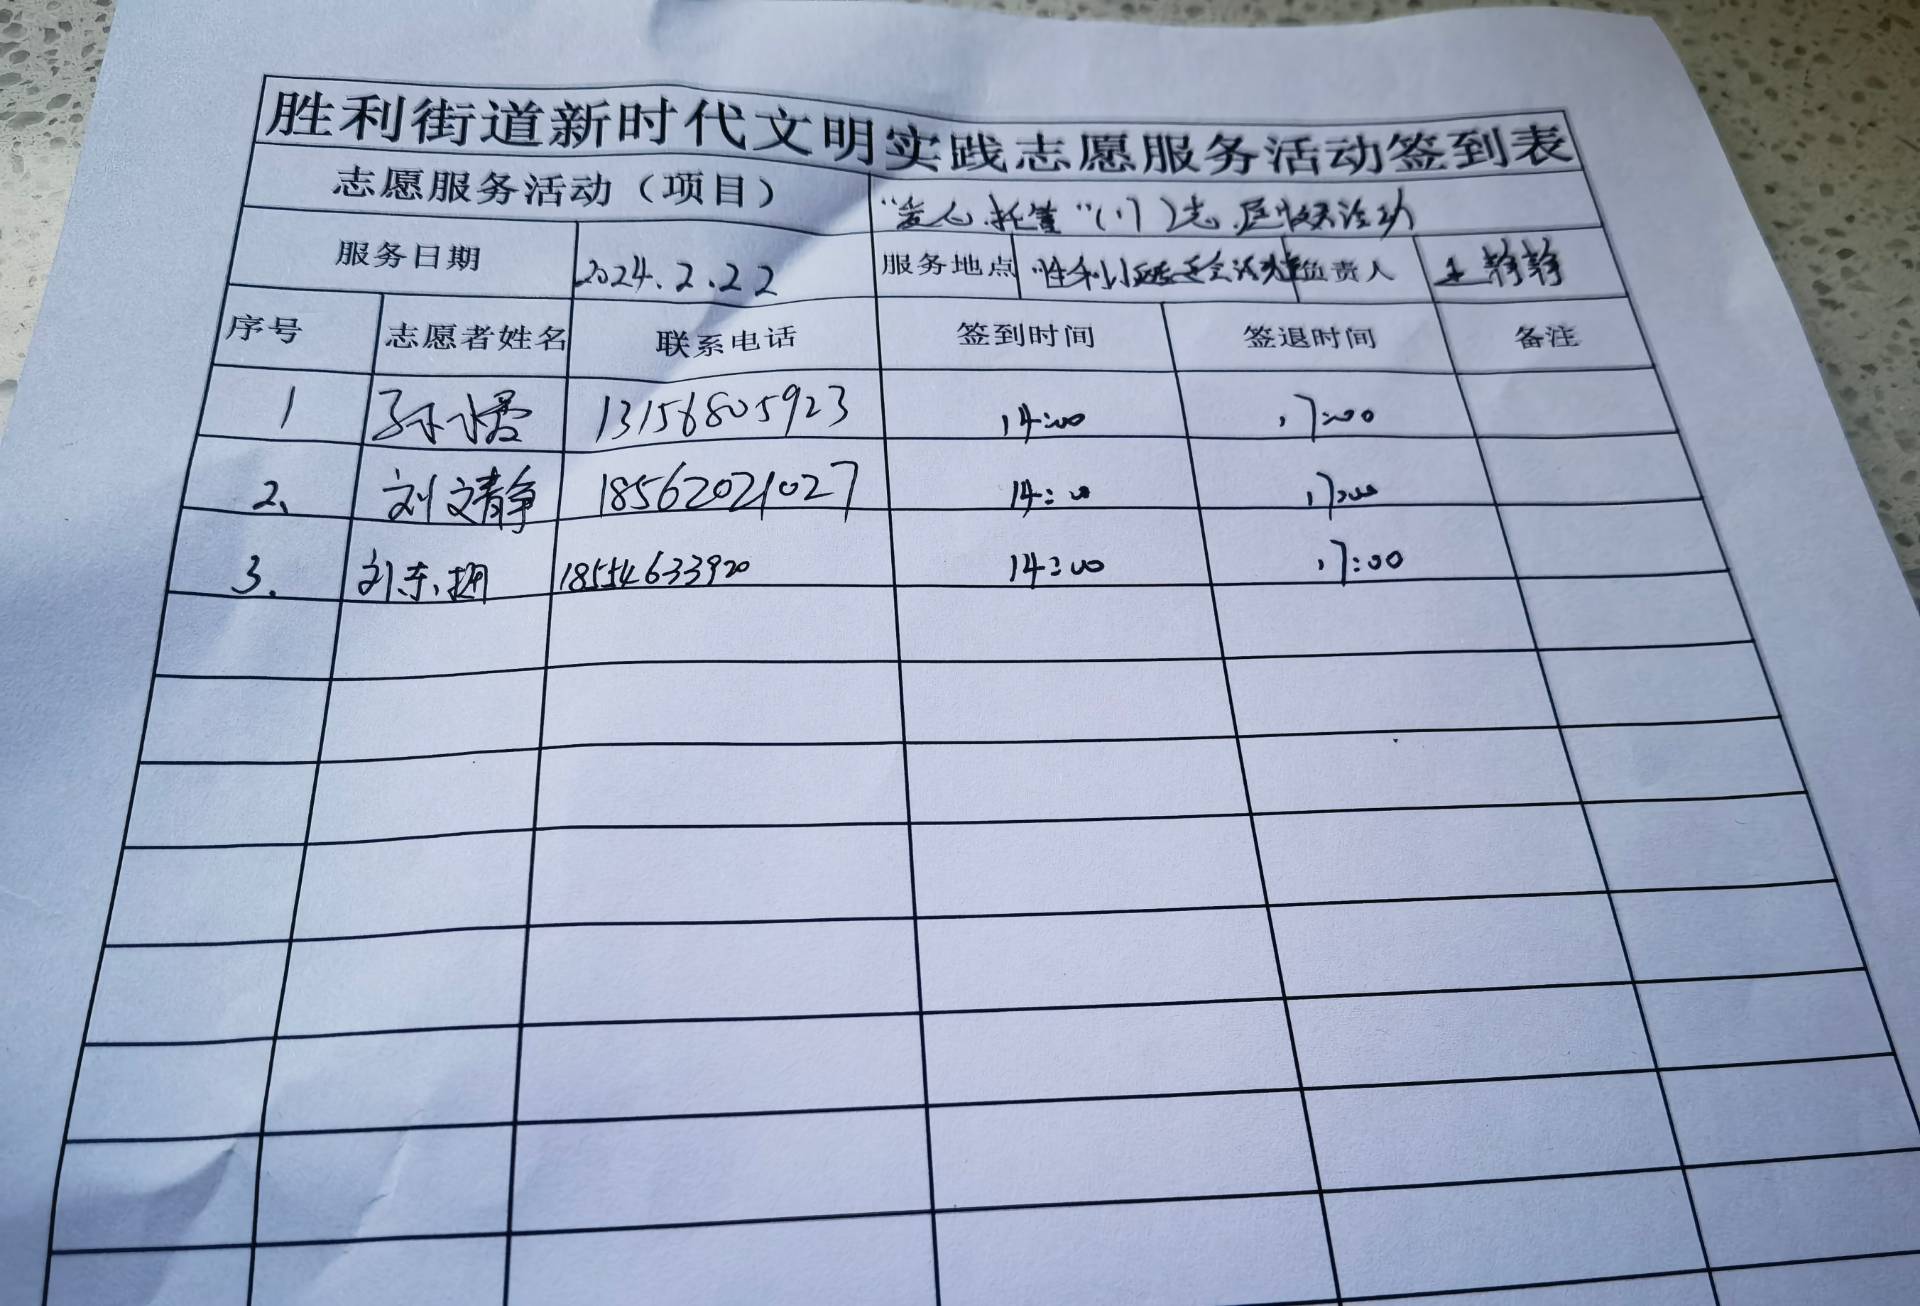 胜利街道新时代文明实践志愿服务活动签到表
志愿服务活动（项目） "爱心托管"（门）志愿服务活动
服务日期 2024.2.22 服务地点 胜利 负责人 王静静
序号 志愿者姓名 联系电话 签到时间 签退时间 备注
1 孙 13156805923 14:00 17:00
2、 刘文静 18562021027 14:00 17:00
3. 刘东 18554633920 14:00 17:00